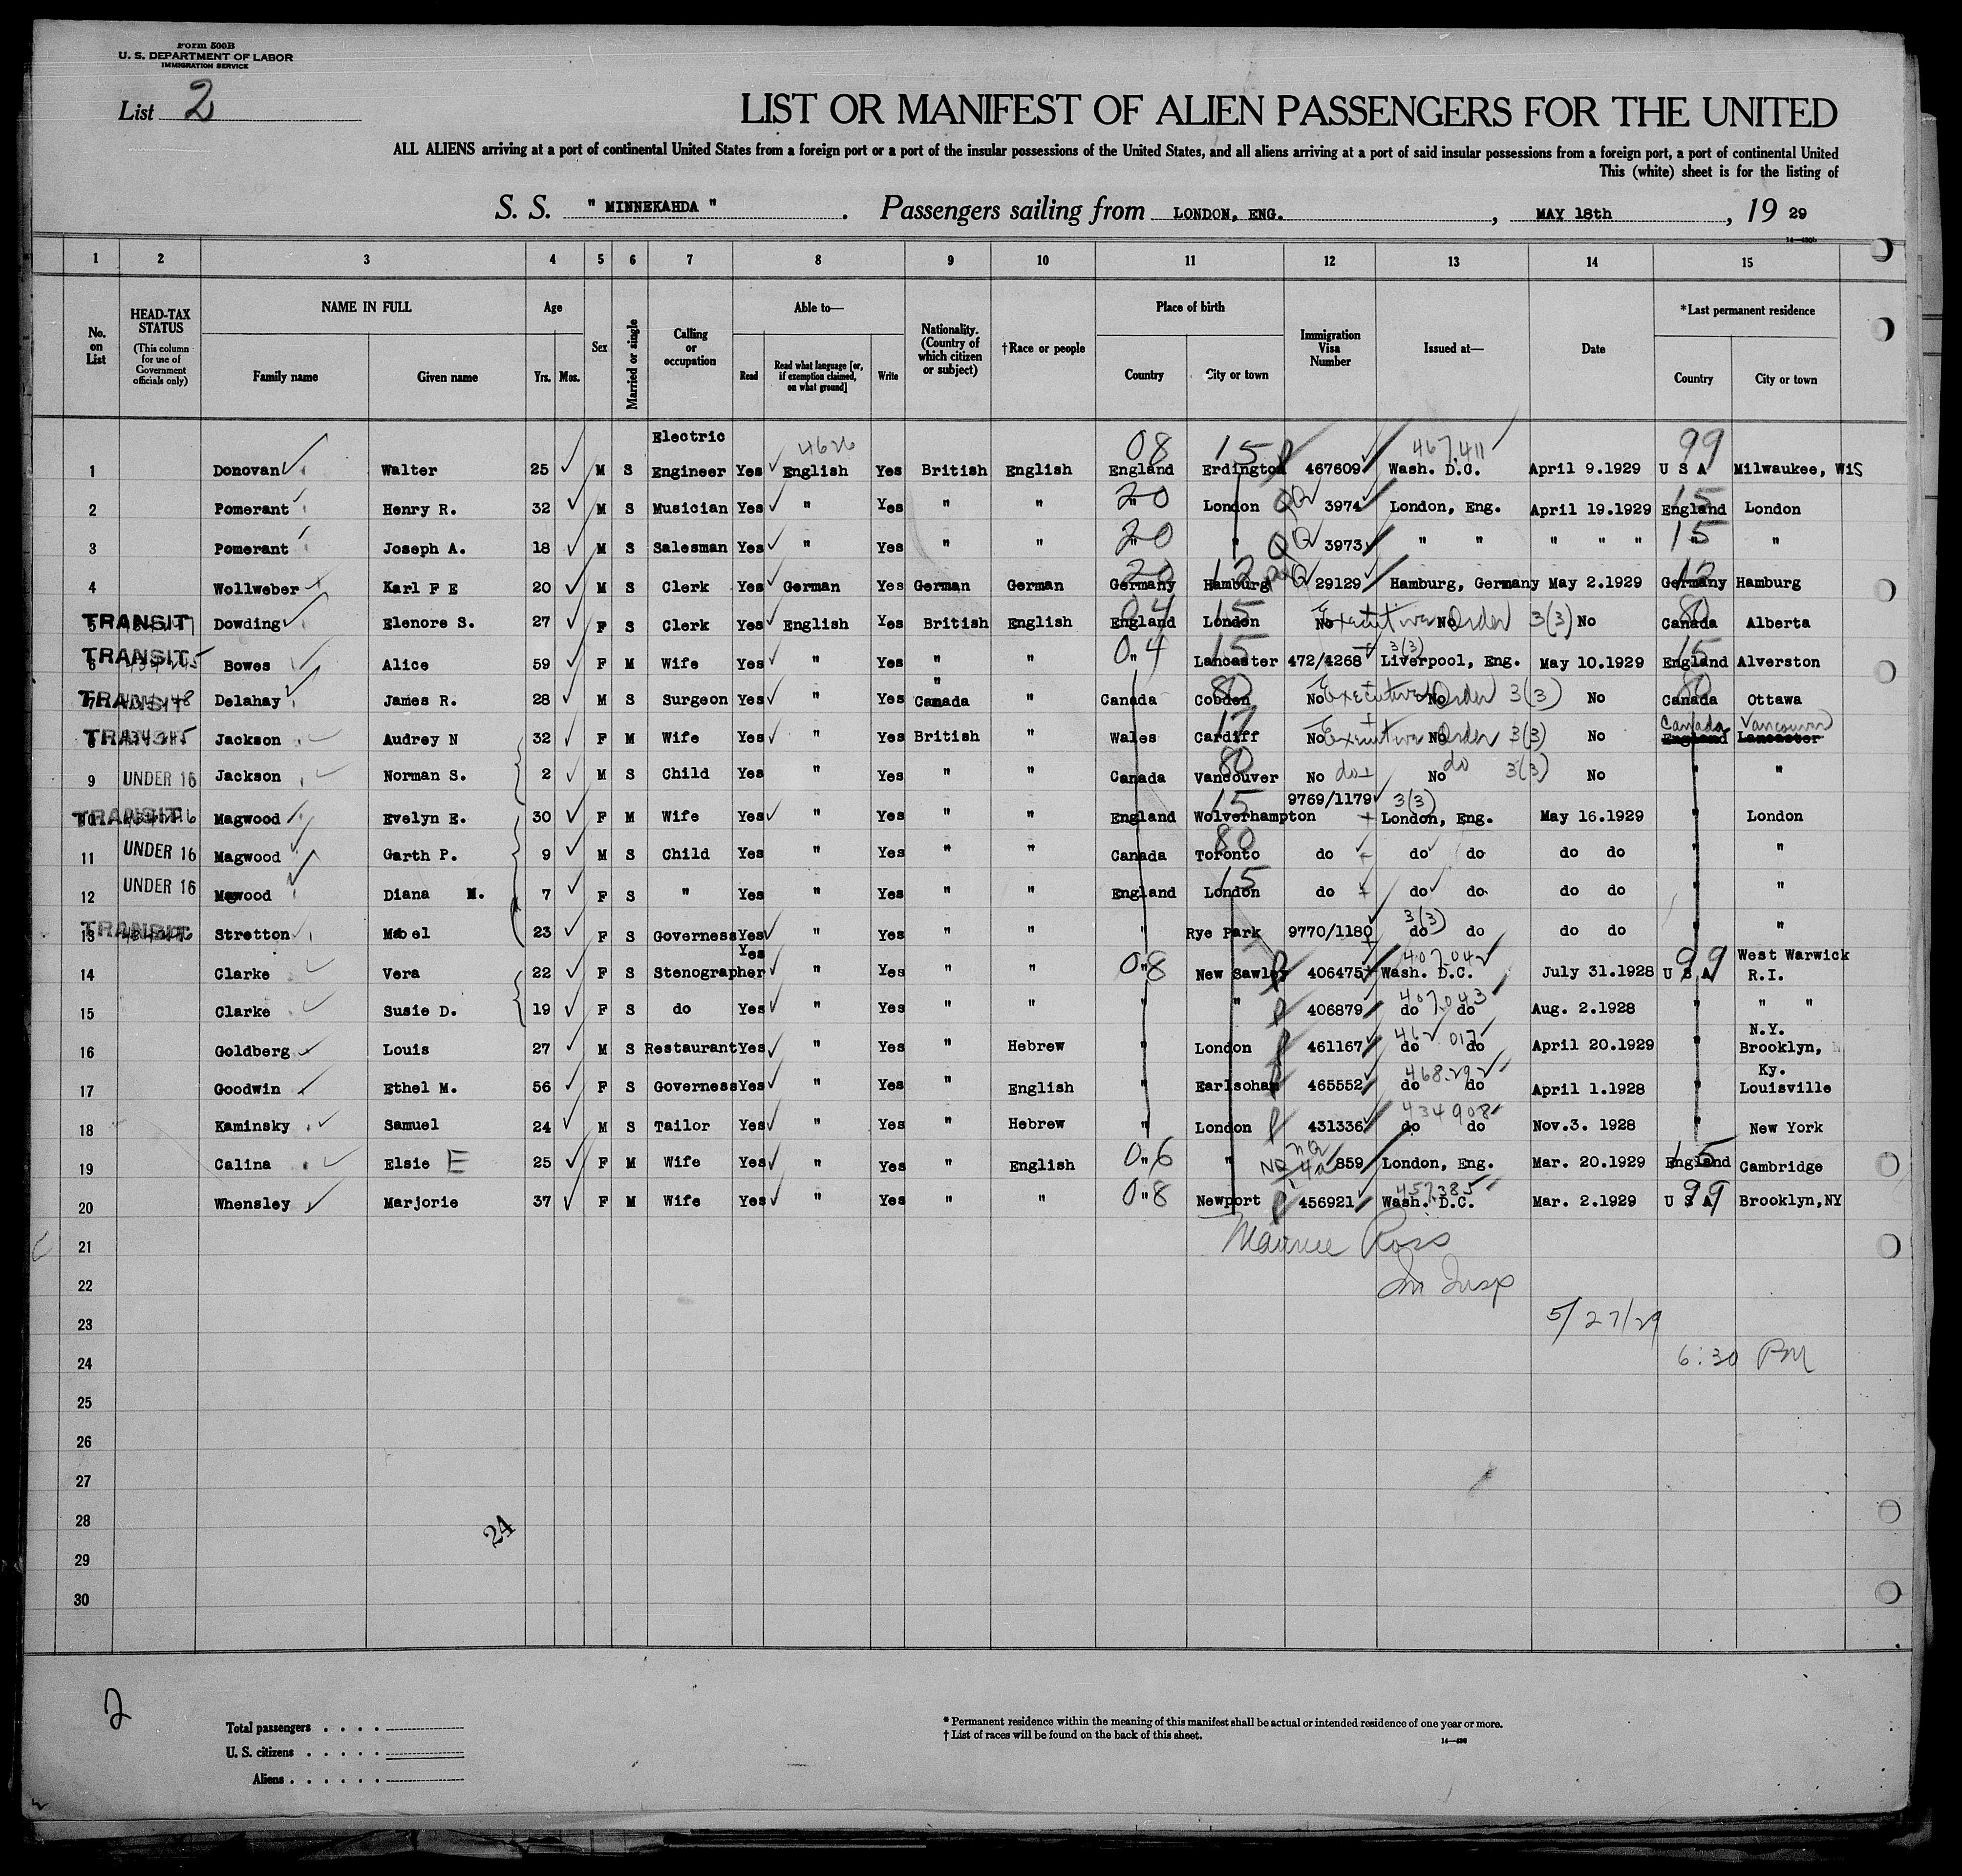 Form 500B
U. S. DEPARTMENT OF LABOR
IMMIGRATION SERVICE
List 2
LIST OR MANIFEST OF ALIEN PASSENGERS FOR THE UNITED
ALL ALIENS arriving at a port of continental United States from a foreign port or a port of the insular possessions of the United States, and all aliens arriving at a port of said insular possessions from a foreign port, a port of continental United
This (white) sheet is for the listing of
S. S. " MINNEKAHDA " . Passengers sailing from LONDON, ENG. , MAY 18th , 19 29
1 2 3 4 5 6 7 8 9 10 11 12 13 14 15
No. on List
HEAD-TAX STATUS (This column for use of Government officials only)
NAME IN FULL
Family name Given name
Age
Yrs. Mos.
Sex
Married or single
Calling or occupation
Able to—
Read Read what language [or, if exemption claimed, on what ground] Write
Nationality. (Country of which citizen or subject)
†Race or people
Place of birth
Country City or town
Immigration Visa Number
Issued at—
Date
*Last permanent residence
Country City or town
Electric 4626 08 15 467,411 99
1 Donovan Walter 25 M S Engineer Yes English Yes British English England Erdington 467609 Wash. D.C. April 9.1929 U S A Milwaukee, WiS
2 Pomerant Henry R. 32 M S Musician Yes " Yes " " 20 " London QQ 3974 London, Eng. April 19.1929 15 England London
3 Pomerant Joseph A. 18 M S Salesman Yes " Yes " " 20 " QQ 3973 " " " " " 15 " "
4 Wollweber Karl F E 20 M S Clerk Yes German Yes German German 20 Germany 12 Hamburg 29129 Hamburg, Germany May 2.1929 12 Germany Hamburg
5 TRANSIT Dowding Elenore S. 27 F S Clerk Yes English Yes British English 04 England 15 London No Executive No Order 3(3) No 80 Canada Alberta
6 TRANSIT Bowes Alice 59 F M Wife Yes " Yes " " 04 " 15 Lancaster 472/4268 3(3) Liverpool, Eng. May 10.1929 15 England Alverston
7 TRANSIT Delahay James R. 28 M S Surgeon Yes " Yes " Canada " Canada 80 Cobden No Executive No Order 3(3) No 80 Canada Ottawa
8 TRANSIT Jackson Audrey N 32 F M Wife Yes " Yes British " Wales 17 Cardiff No Executive No Order 3(3) No Canada England Vancouver Lancaster
9 UNDER 16 Jackson Norman S. 2 M S Child Yes " Yes " " Canada 80 Vancouver No do No do 3(3) No " "
10 TRANSIT Magwood Evelyn E. 30 F M Wife Yes " Yes " " England 15 Wolverhampton 9769/1179 3(3) London, Eng. May 16.1929 " London
11 UNDER 16 Magwood Garth P. 9 M S Child Yes " Yes " " Canada 80 Toronto do do do do do " "
12 UNDER 16 Mawood Diana M. 7 F S " Yes " Yes " " England 15 London do do do do do " "
13 TRANSIT Stretton Mabel 23 F S Governess Yes " Yes " " " Rye Park 9770/1180 3(3) do do do do " "
14 Clarke Vera 22 F S Stenographer Yes " Yes " " 08 " New Sawley 406475 407042 Wash. D.C. July 31.1928 99 U S A West Warwick R.I.
15 Clarke Susie D. 19 F S do Yes " Yes " " " " 406879 407,043 do do Aug. 2.1928 " " "
16 Goldberg Louis 27 M S Restaurant Yes " Yes " Hebrew " London 461167 462 017 do do April 20.1929 " N.Y. Brooklyn,
17 Goodwin Ethel M. 56 F S Governess Yes " Yes " English " Earlsoham 465552 468292 do do April 1.1928 " Ky. Louisville
18 Kaminsky Samuel 24 M S Tailor Yes " Yes " Hebrew " London 431336 434908 do do Nov.3. 1928 " New York
19 Calina Elsie E 25 F M Wife Yes " Yes " English 06 " " 859 London, Eng. Mar. 20.1929 15 England Cambridge
20 Whensley Marjorie 37 F M Wife Yes " Yes " " 08 " Newport 456921 457385 Wash. D.C. Mar. 2.1929 99 U S A Brooklyn,NY
21 Ross
22 Insp
23 5/27/29
24 6:30 PM
25
26
27
28
24
29
30
2
Total passengers . . . .
U. S. citizens . . . . .
Aliens . . . . . .
* Permanent residence within the meaning of this manifest shall be actual or intended residence of one year or more.
† List of races will be found on the back of this sheet.